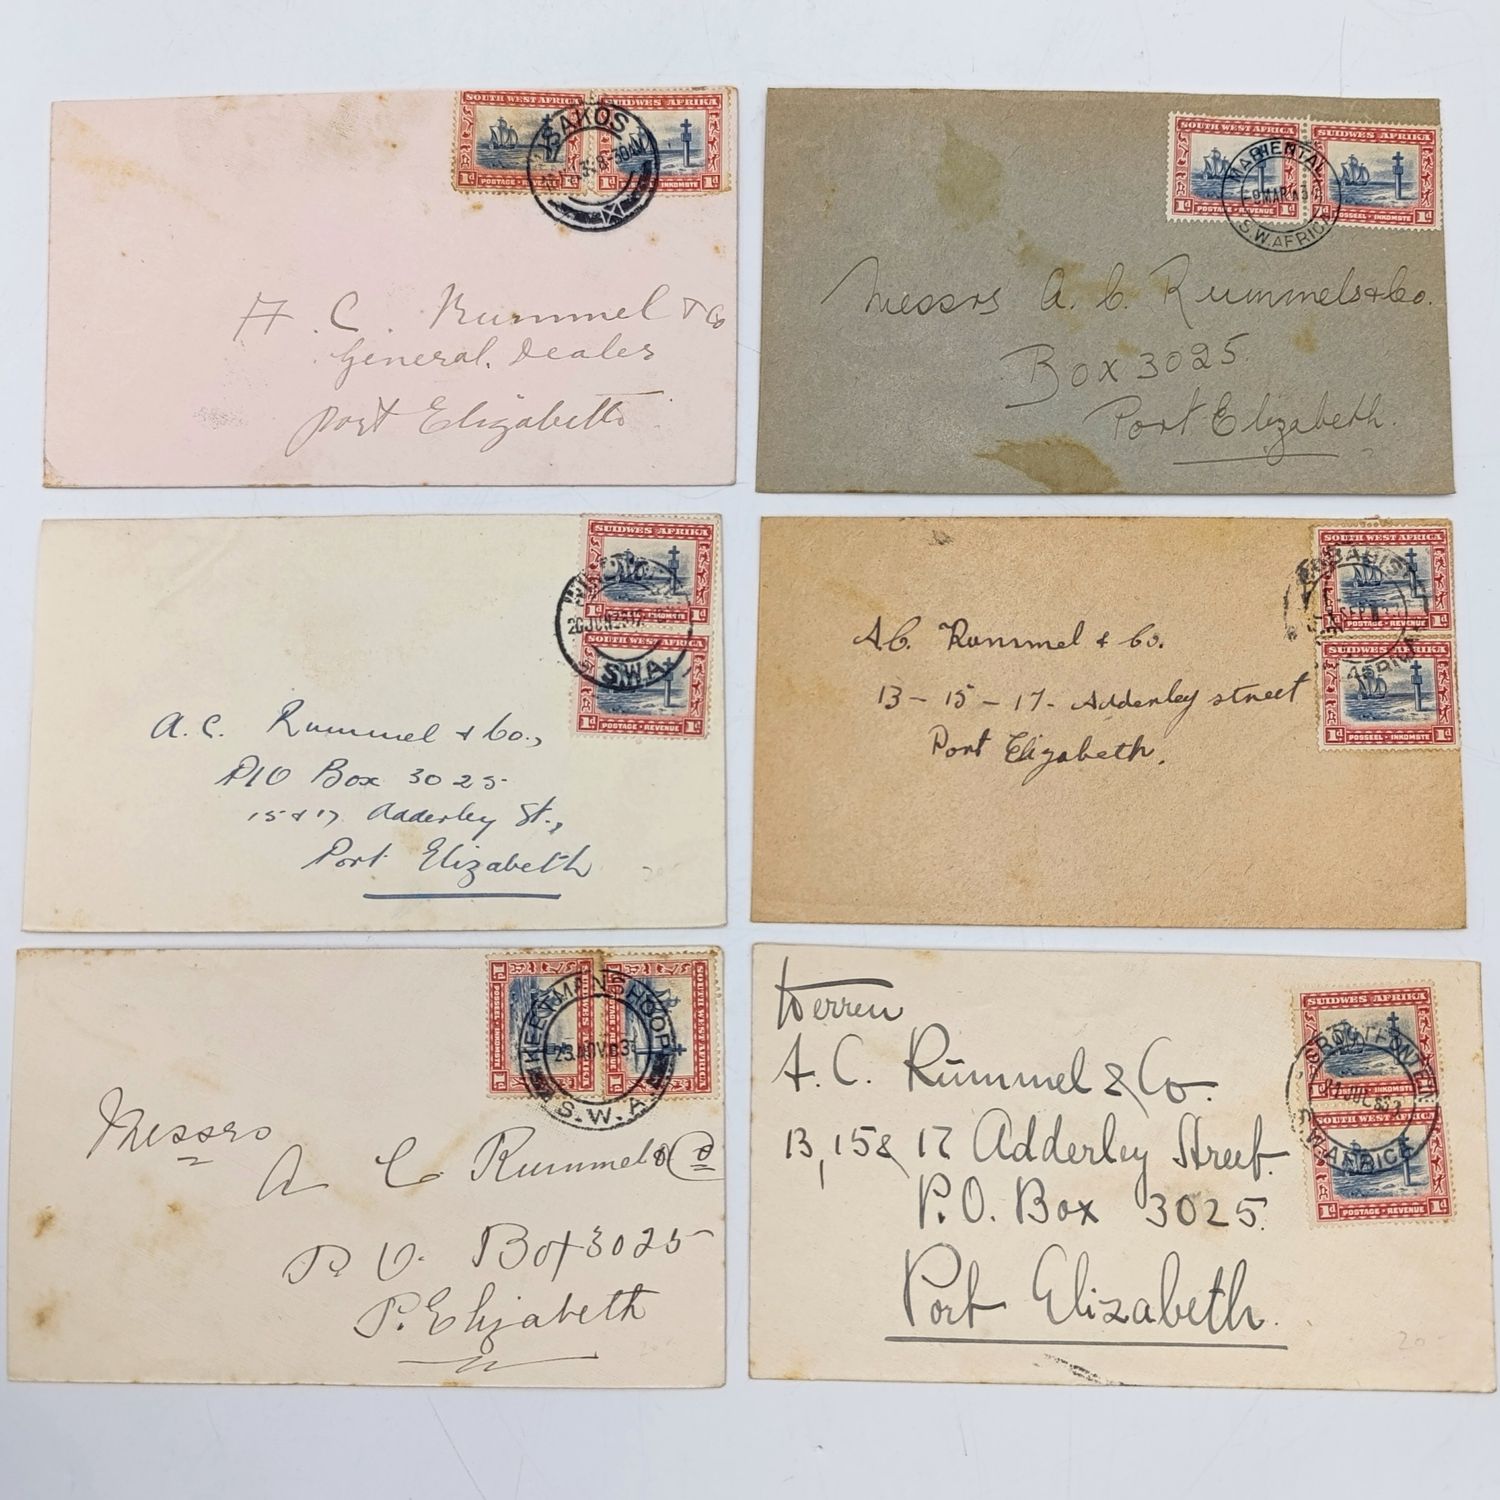 SOUTH WEST AFRICA SUIDWES AFRIKA
1d POSTAGE · REVENUE 1d POSSEEL · INKOMSTE 1d
USAKOS
A. C. Rummel & Co
General. Dealer
Port Elizabeth
SOUTH WEST AFRICA SUIDWES AFRIKA
1d POSTAGE · REVENUE 1d POSSEEL · INKOMSTE 1d
MARIENTAL
MAR
S.W. AFRICA
Messrs A. C. Rummels & Co.
Box 3025
Port Elizabeth.
SUIDWES AFRIKA
1d INKOMSTE 1d
SOUTH WEST AFRICA
1d POSTAGE · REVENUE 1d
JUN
SWA
A. C. Rummel & Co.,
P/O Box 3025
15 & 17 Adderley St.,
Port Elizabeth
SOUTH WEST AFRICA
1d POSTAGE · REVENUE 1d
SUIDWES AFRIKA
1d POSSEEL · INKOMSTE 1d
SEP
A.C. Rummel & Co.
13 - 15 - 17 - Adderley street
Port Elizabeth.
1d POSSEEL · INKOMSTE 1d
SUIDWES AFRIKA
1d POSTAGE · REVENUE 1d
SOUTH WEST AFRICA
KEETMANSHOOP
S.W.A.
Messrs
A C Rummel & Co
P. O. Box 3025
P. Elizabeth
SUIDWES AFRIKA
1d INKOMSTE 1d
SOUTH WEST AFRICA
1d POSTAGE · REVENUE 1d
GROOTFONTEIN
S.W. AFRICA
Herren
A. C. Rümmel & Co.
13, 15 & 17 Adderley Street.
P.O. Box 3025.
Port Elizabeth.
20-